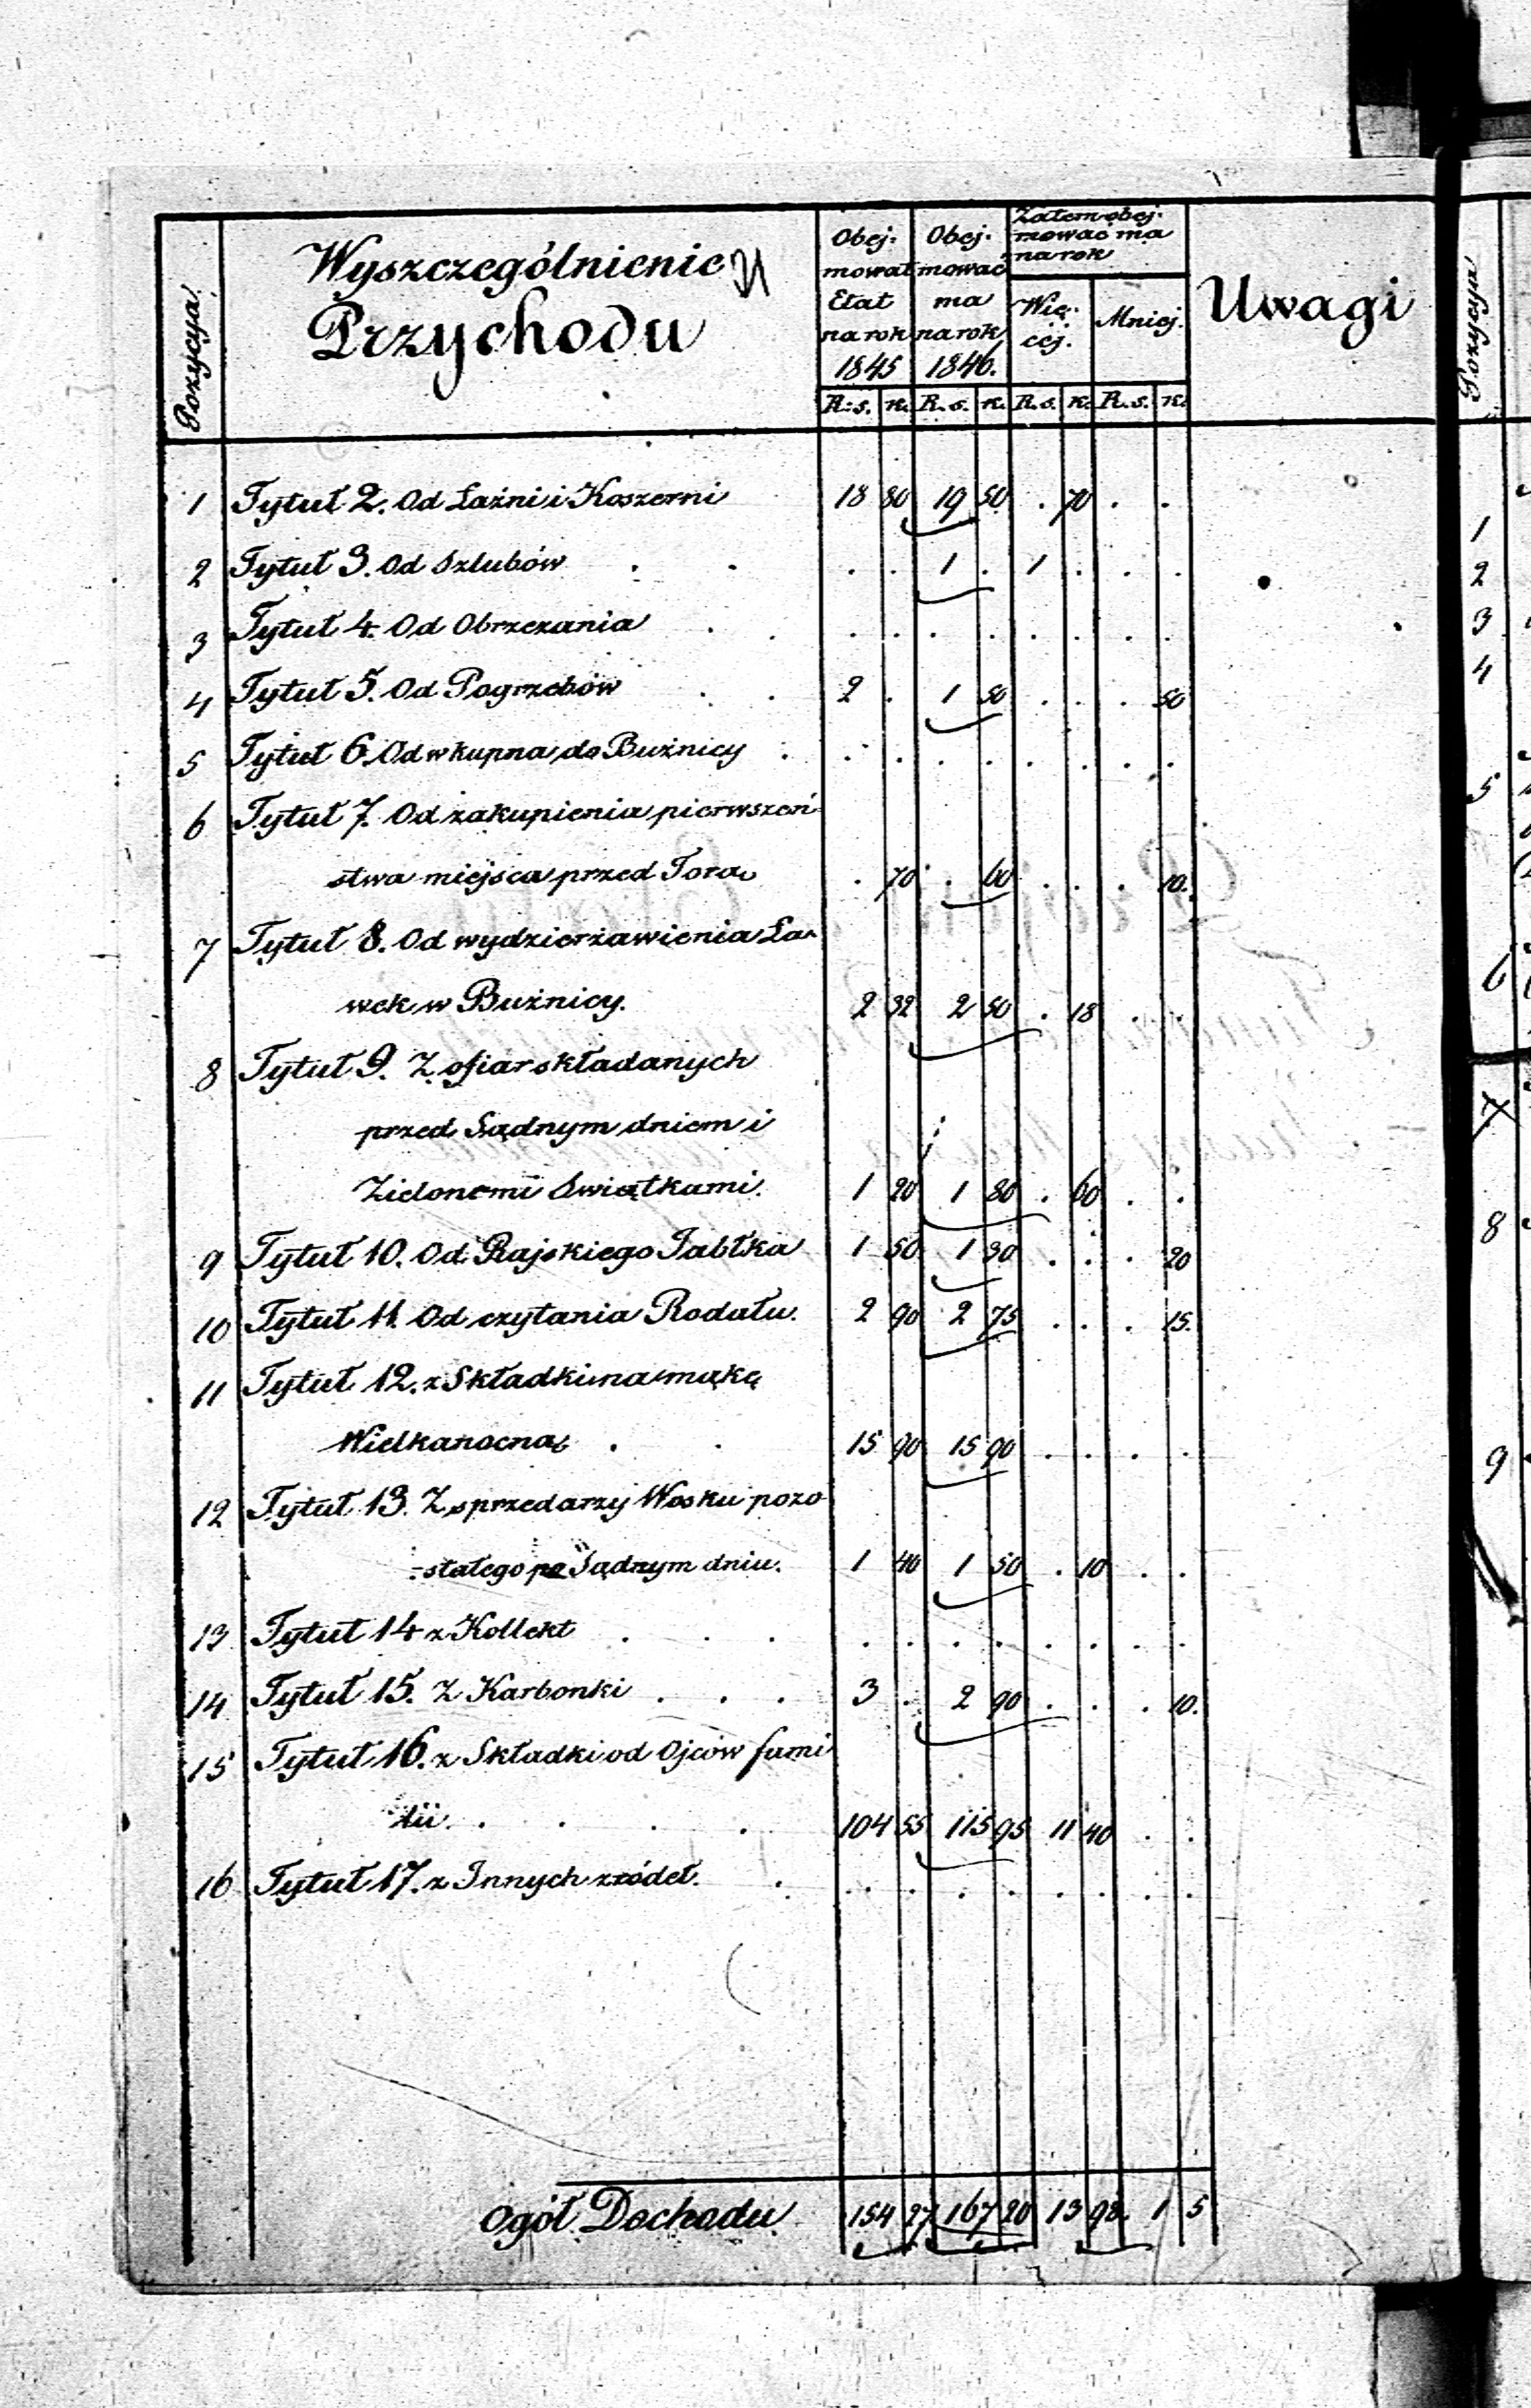 Pozycya
Wyszczególnienie
Przychodu
Obej-
mował
Etat
na rok
1845
Obej-
mować
ma
na rok
1846.
Zatem obej-
mować ma
na rok
Wię-
céj.
Mniej.
Uwagi
R. s. K. R. s. K. R. s. K. R. s. K.
1 Tytuł 2. Od Łaźni i Koszerni 18 80 19 50 . 70 . .
2 Tytuł 3. Od Szlubów . . . . 1 . 1 . . .
3 Tytuł 4. Od Obrzezania . . . . . . . . . .
4 Tytuł 5. Od Pogrzebów . . 2 . 1 50 . . . 50
5 Tytuł 6. Od wkupna do Bużnicy . . . . . . . . .
6 Tytuł 7. Od zakupienia pierwszeń
stwa miejsca przed Torą . 70 . 60 . . . 10.
7 Tytuł 8. Od wydzierżawienia Ła-
wek w Bużnicy. 2 32 2 50 . 18 . .
8 Tytuł 9. Z ofiar składanych
przed Sądnym dniem i
Zielonemi Swiątkami. 1 20 1 80 . 60 . .
9 Tytuł 10. Od Rajskiego Jabłka 1 50 1 30 . . . 20
10 Tytuł 11. Od czytania Rodału. 2 90 2 75 . . . 15.
11 Tytuł 12. z Składki na mąkę
Wielkanocną . . 15 90 15 90 . . . .
12 Tytuł 13. Z sprzedarzy Wosku pozo-
stałego po Sądnym dniu. 1 40 1 50 . 10 . .
13 Tytuł 14 z Kollekt . . . . . . . . . . .
14 Tytuł 15. Z Karbonki . . . 3 . 2 90 . . . 10.
15 Tytuł 16. z Składki od Ojców fami
lii. . . . . 104 55 115 95 11 40 . .
16 Tytuł 17. z Innych zródeł. . . . . . . . . .
Ogół Dochodu 154 27 167 20 13 98. 1 5
Pozycya
1
2
3
4
5
6
7
8
9